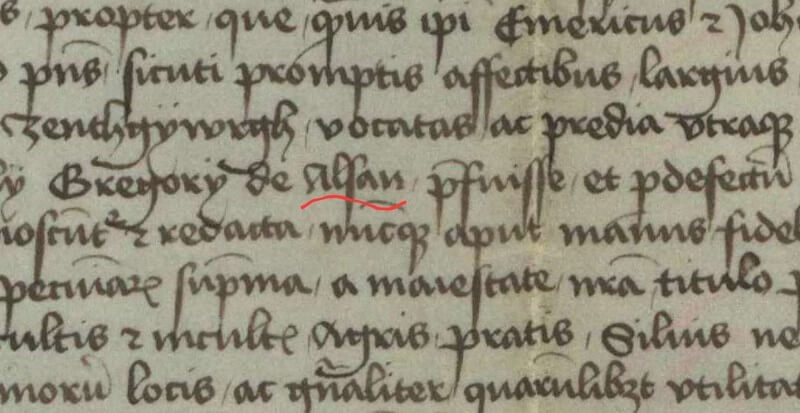 s, propter, que, qͣuis ipi Emericus ⁊ Joh
pn̄s, sicuti promptis affectibus, largius
zenthgÿwrgh, vocatas, ac predia vtraqꝫ
ÿ Gregorÿ de Alsan, p̄fuisse, et pdefectū
noscūt ⁊ redacta, nūcqꝫ aput manus fidel
pecuniaꝝ sūpma, a maiestate, nrā, titulo p
ultis ⁊ incultꝭ, Agris, pratis, Siluis ne
moru᷑ locis, ac gn̄aliter, quarūlibꝫt vtilitat